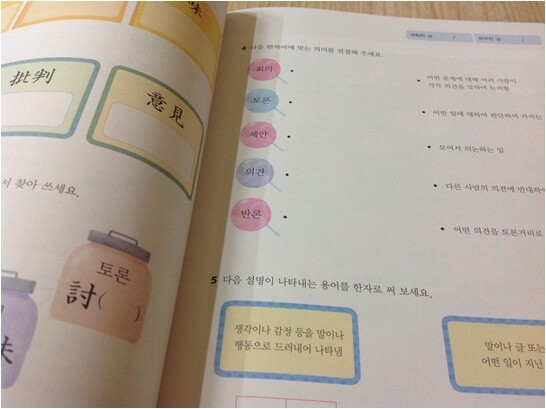 味
批判
意見
서 찾아 쓰세요.
토론
討( )
味
4 다음 한자어에 맞는 의미를 연결해 주세요.
회의
토론
제안
의견
반론
어떤 문제에 대해 여러 사람이
각각 의견을 말하여 논의함
어떤 일에 대하여 판단하여 가지는
모여서 의논하는 일
다른 사람의 의견에 반대하여
어떤 의견을 토론거리로
5 다음 설명이 나타내는 용어를 한자로 써 보세요.
생각이나 감정 등을 말이나
행동으로 드러내어 나타냄
말이나 글 또는
어떤 일이 지닌